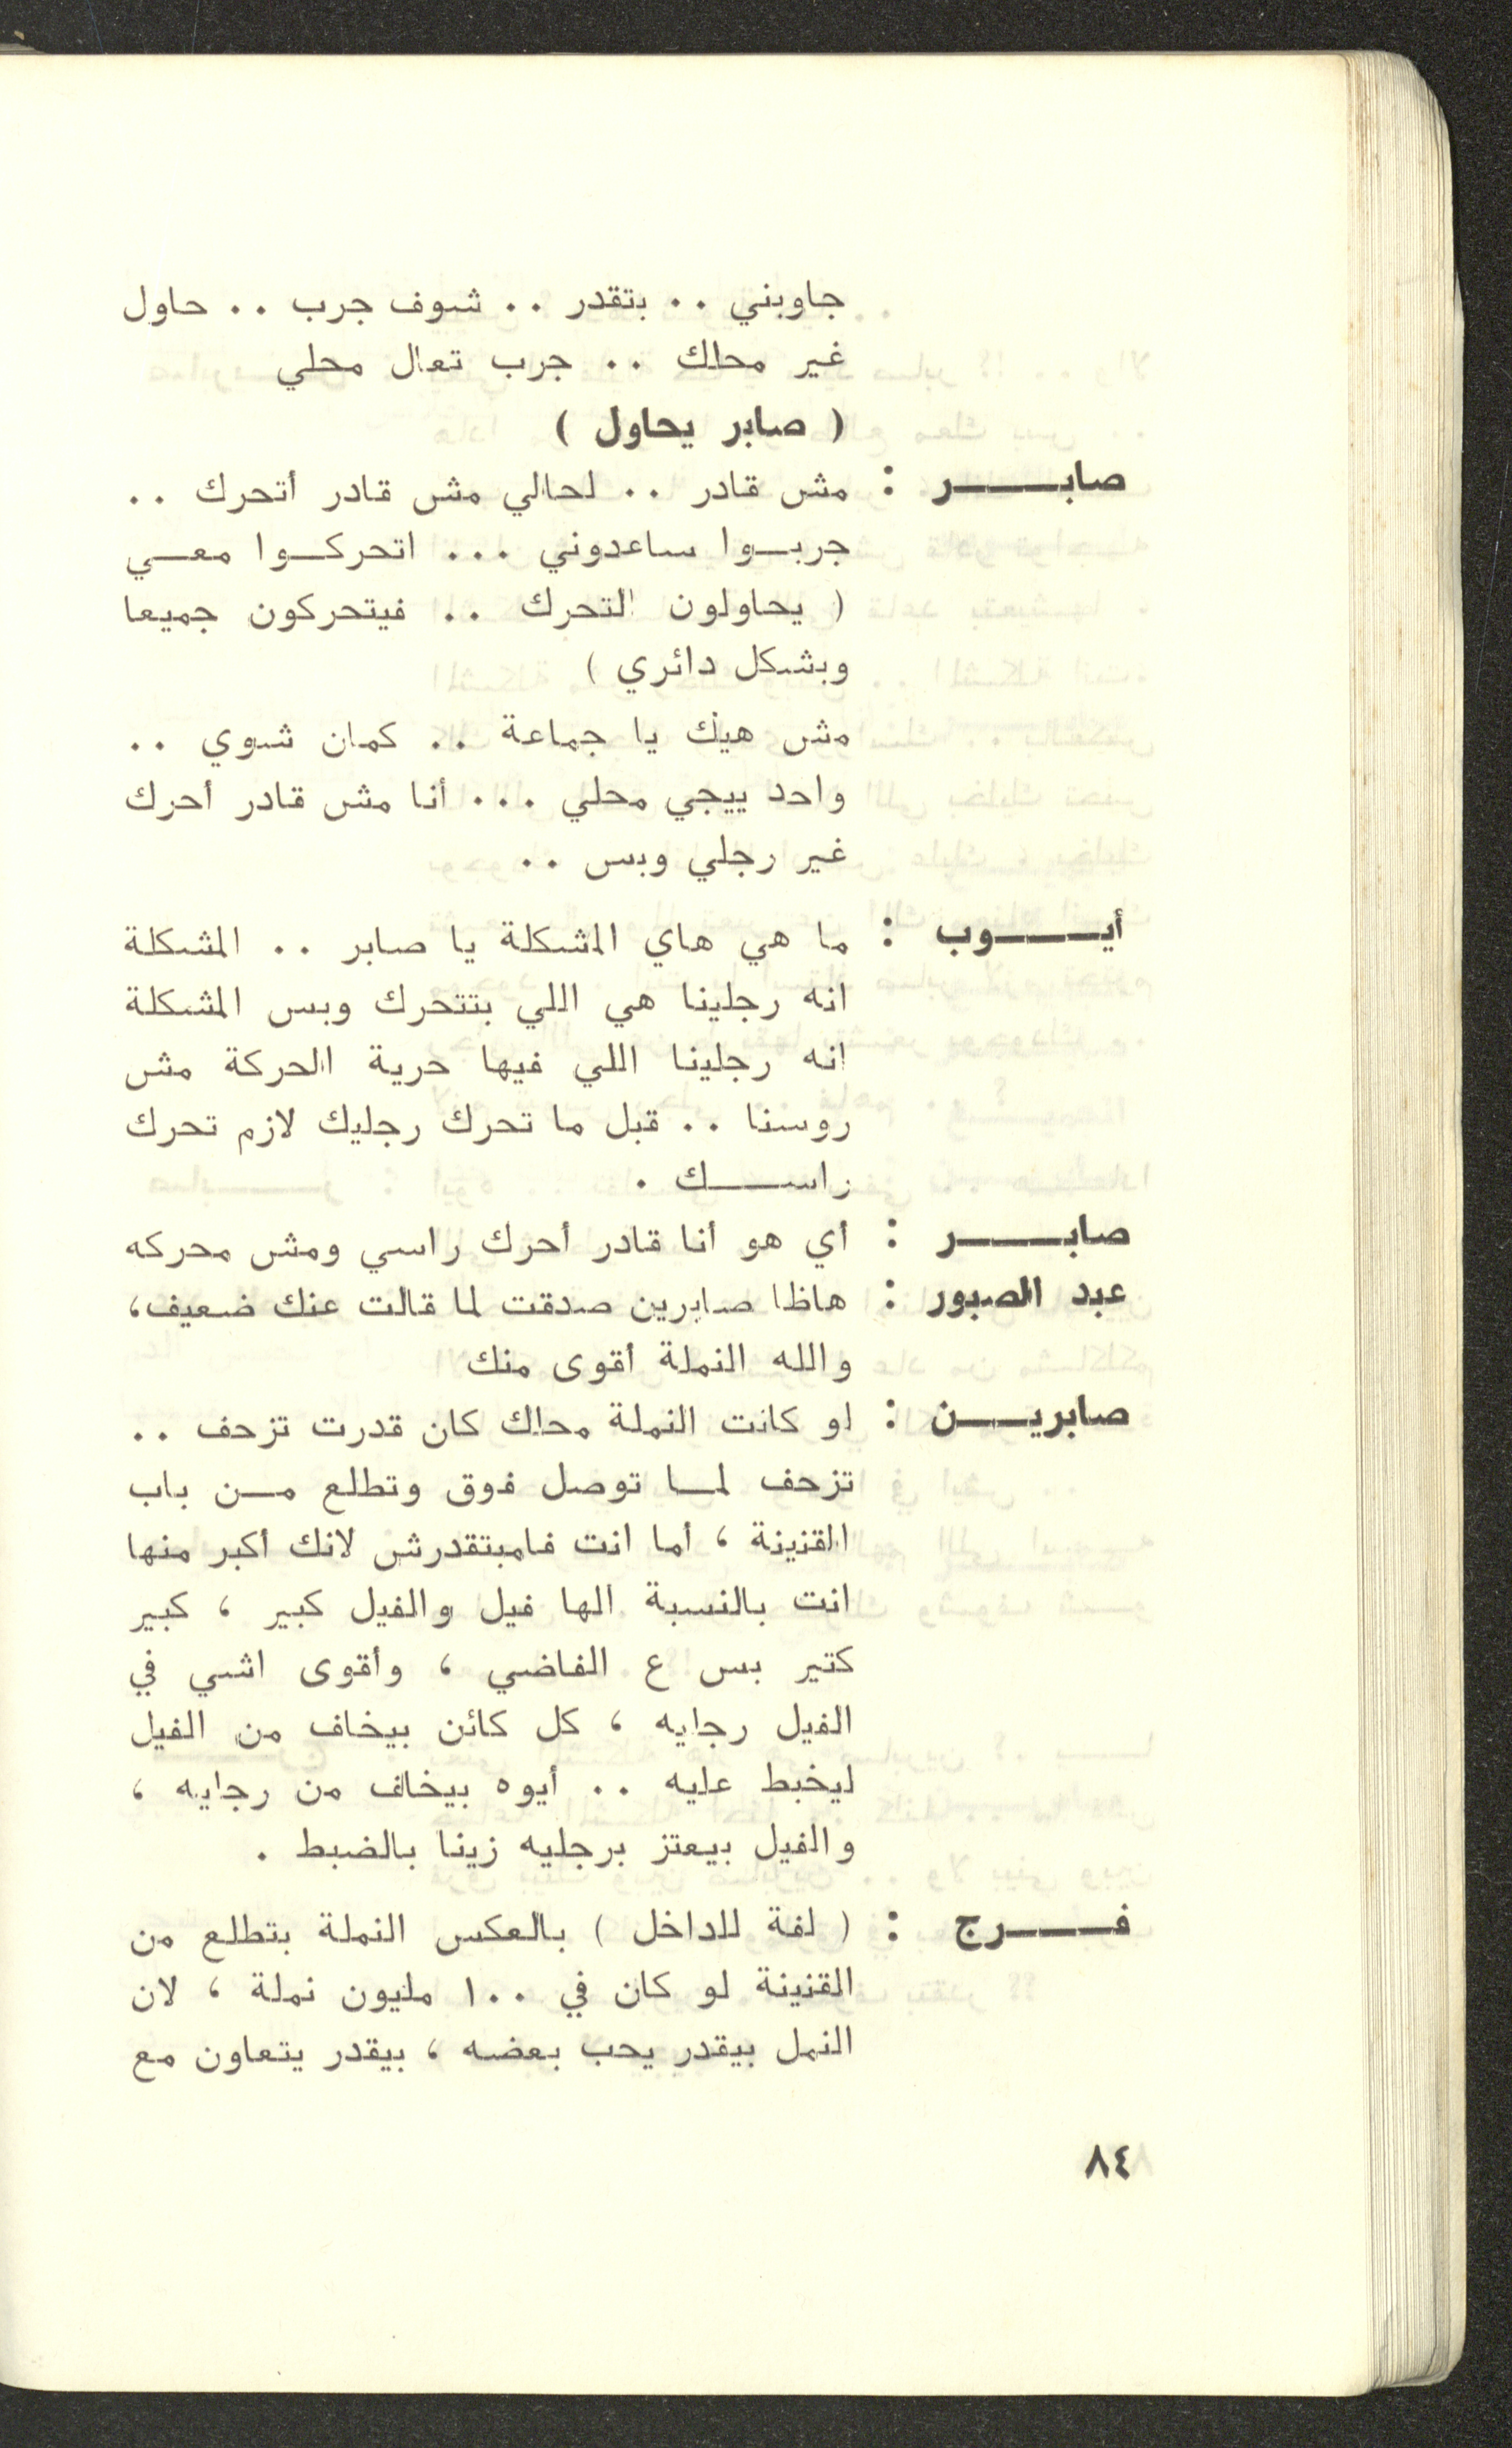 جاوبني .. بتقدر .. شوف جرب .. حاول
غير محلك .. جرب تعال محلي
( صابر يحاول )
صابــــر : مش قادر .. لحالي مش قادر أتحرك ..
جربــوا ساعدوني ... اتحركــوا معــي
( يحاولون التحرك .. فيتحركون جميعا
وبشكل دائري )
مش هيك يا جماعة .. كمان شوي ..
واحد ييجي محلي ... أنا مش قادر أحرك
غير رجلي وبس ..
أيــــوب : ما هي هاي المشكلة يا صابر .. المشكلة
انه رجلينا هي اللي بتتحرك وبس المشكلة
انه رجلينا اللي فيها حرية الحركة مش
روسنا .. قبل ما تحرك رجليك لازم تحرك
راســــك .
صابــــر : أي هو أنا قادر أحرك راسي ومش محركه
عبد الصبور : هاظا صابرين صدقت لما قالت عنك ضعيف،
والله النملة أقوى منك
صابريــــن : لو كانت النملة محلك كان قدرت تزحف ..
تزحف لمــا توصل فوق وتطلع مــن باب
القنينة ، أما انت فامبتقدرش لانك أكبر منها
انت بالنسبة الها فيل والفيل كبير ، كبير
كتير بس ع الفاضي ، وأقوى اشي في
الفيل رجليه ، كل كائن بيخاف من الفيل
ليخبط عليه .. أيوه بيخاف من رجليه ،
والفيل بيعتز برجليه زينا بالضبط .
فــــرج : ( لفة للداخل ) بالعكس النملة بتطلع من
القنينة لو كان في ١٠٠ مليون نملة ، لان
النمل بيقدر يحب بعضه ، بيقدر يتعاون مع
٨٤